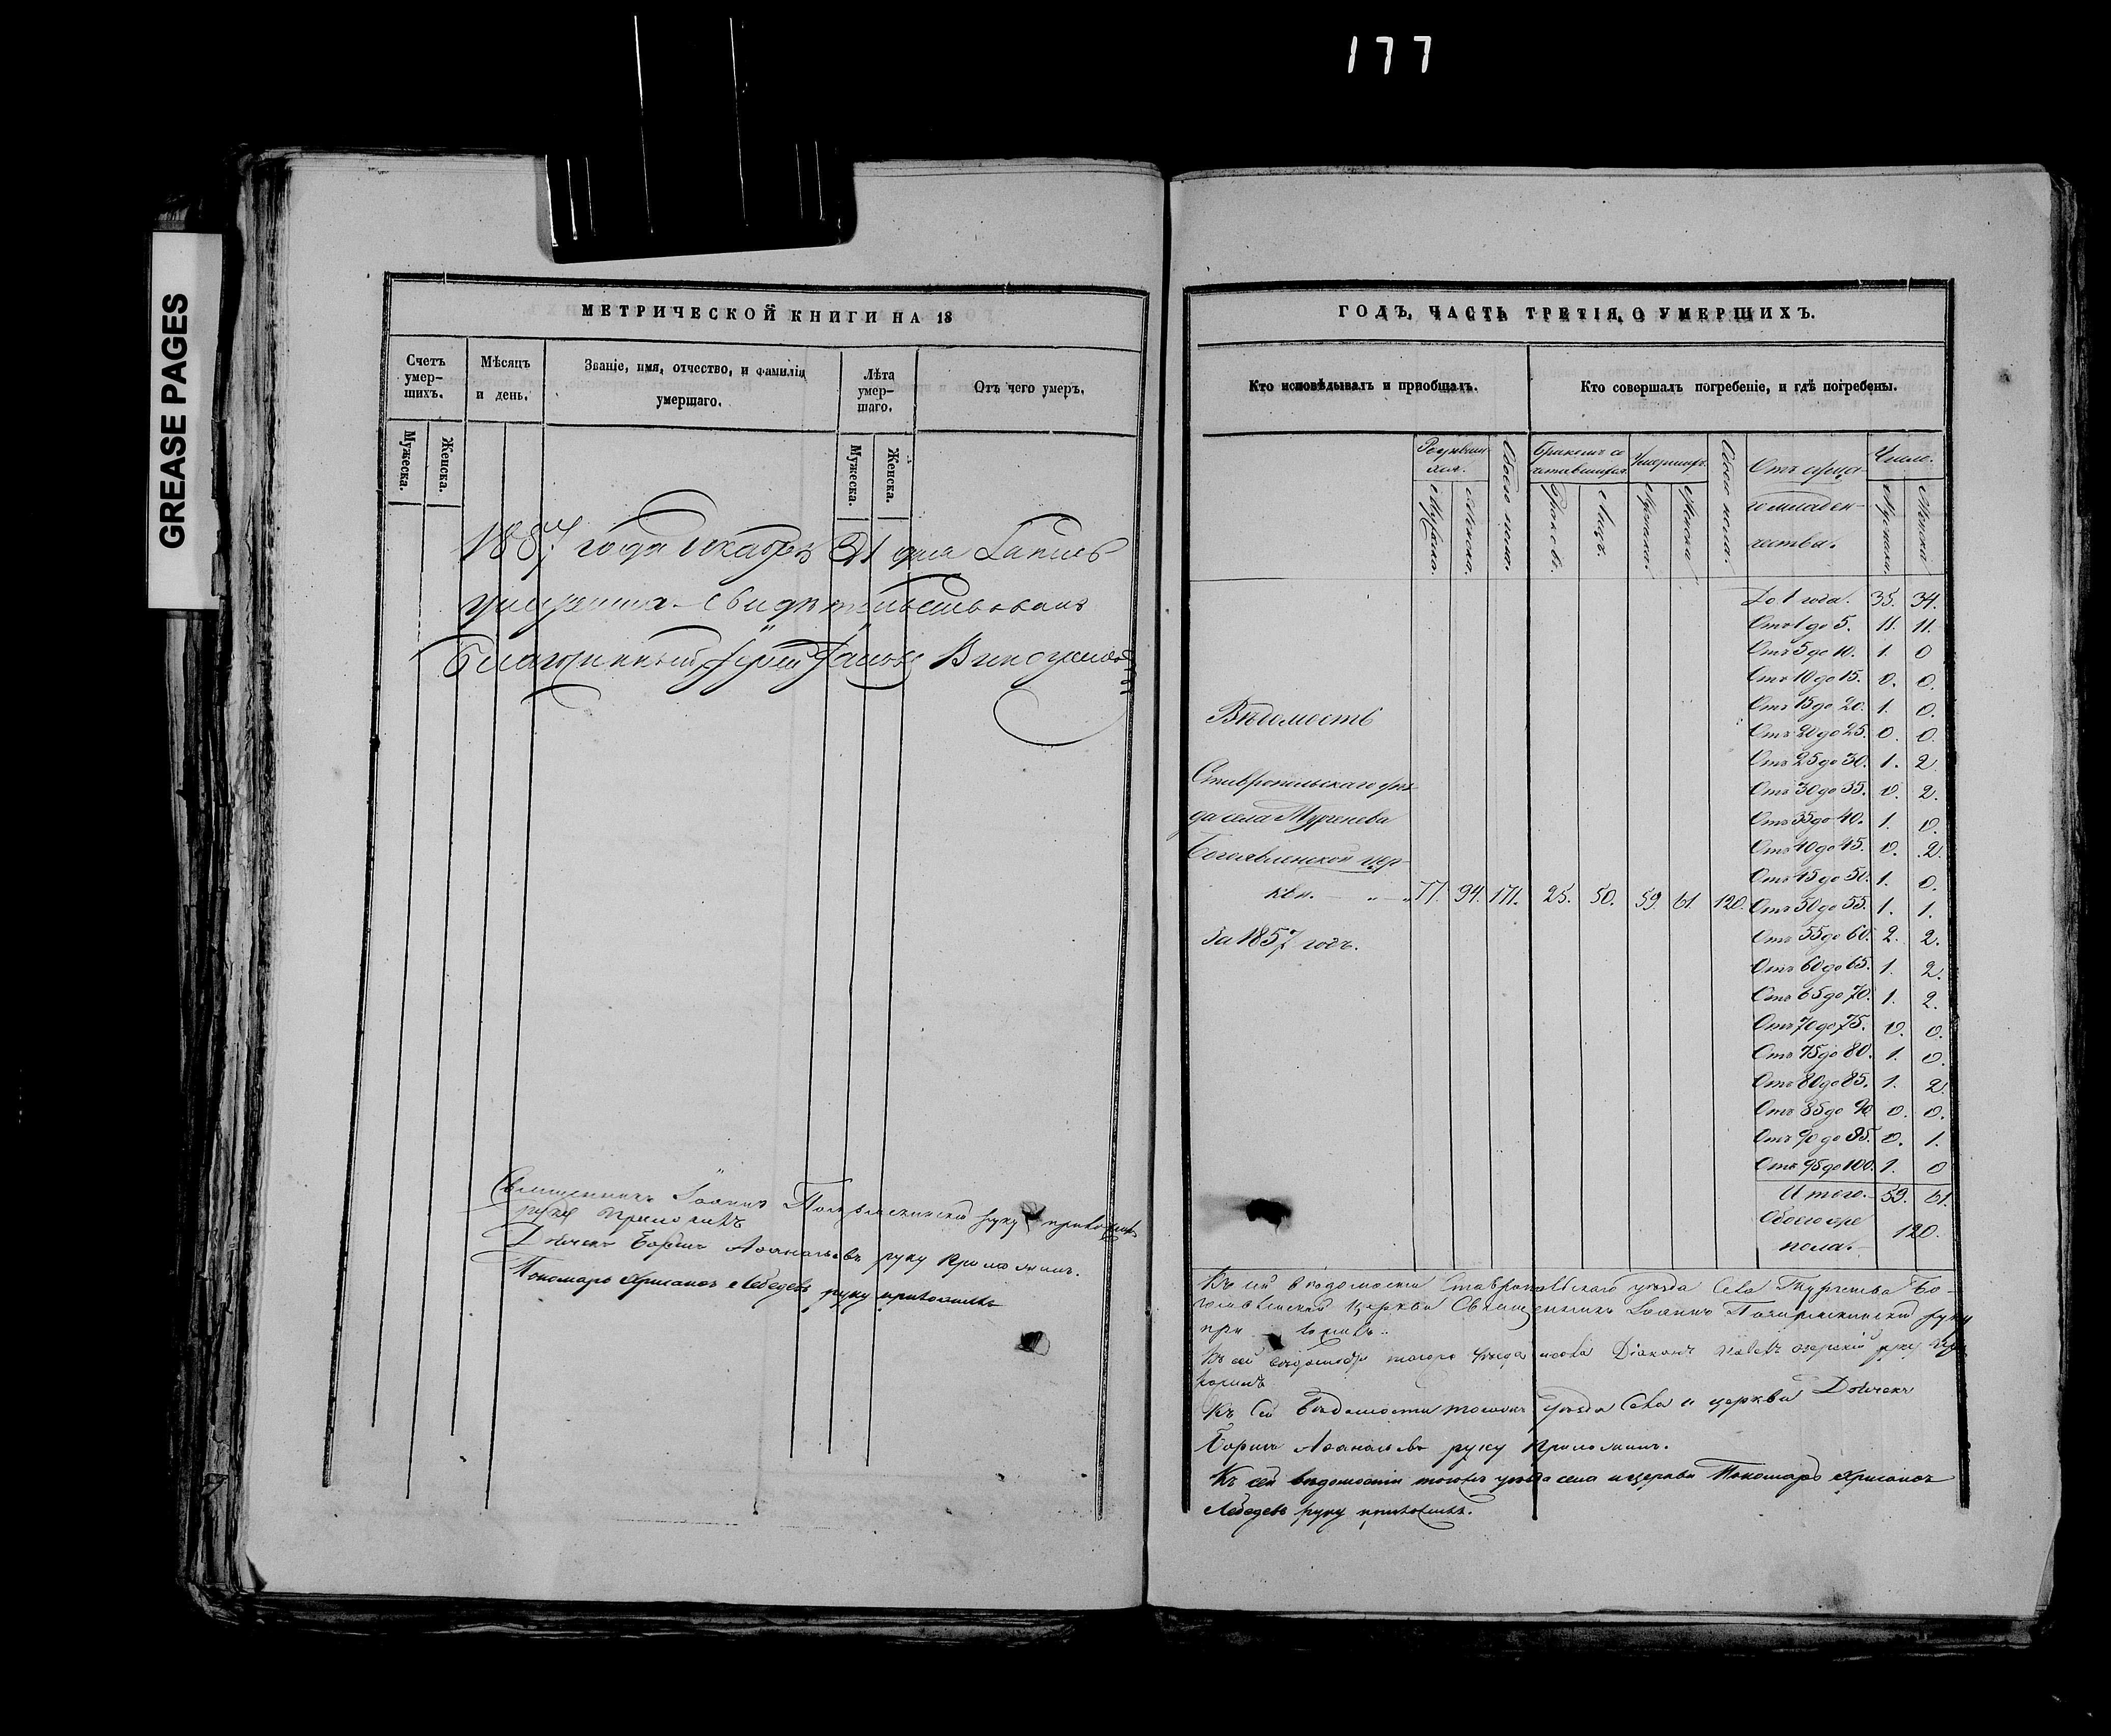 177
GREASE PAGES
МЕТРИЧЕСКОЙ КНИГИ НА 18
Счетъ умер-
шихъ.
Мѣсяцъ
и день.
Званіе, имя, отчество, и фамилія
умершаго.
Лѣта
умер-
шаго.
Отъ чего умеръ.
Мужеска.
Женска.
Мужеска.
Женска.
1857 года декабря 31 дня Запись
умершихъ свидѣтельствовалъ
Благочинный Іерей
Священникъ Іоаннъ руку приложилъ
руку приложилъ
Дьячекъ Борисъ Аѳанасьевъ руку приложилъ.
Пономарь Хрисанѳъ Лебедевъ руку приложилъ
ГОДЪ, ЧАСТЬ ТРЕТІЯ, О УМЕРШИХЪ.
Кто исповѣдывалъ и пріобщалъ.
Кто совершалъ погребеніе, и гдѣ погребены.
Родивших-
ся.
Обоего пола.
Бракомъ со-
четавшихся.
Умершихъ.
Обоего пола.
Отъ
младен-
чества.
Число.
Мужеска.
Женска.
Браковъ.
Лицъ.
Мужеска.
Женска.
Мужеска.
Женска.
До 1 года. 35. 34.
Отъ 1 до 5. 11. 11.
Отъ 5 до 10. 1. 0
Отъ 10 до 15. 0. 0.
Отъ 15 до 20. 1. 0.
Отъ 20 до 25. 0. 0.
Отъ 25 до 30. 1. 2
Отъ 30 до 35. 0. 2.
Отъ 35 до 40. 1. 0.
Отъ 40 до 45. 0. 2.
Отъ 45 до 50. 1. 0.
Отъ 50 до 55. 1. 1.
Отъ 55 до 60. 2. 2.
Отъ 60 до 65. 1. 2.
Отъ 65 до 70. 1. 2.
Отъ 70 до 75. 0. 0.
Отъ 75 до 80. 1. 0.
Отъ 80 до 85. 1. 2
Отъ 85 до 90 0. 0.
Отъ 90 до 95. 0. 1.
Отъ 95 до 100. 1. 0
Итого. 59. 61.
Обоего
пола. 120.
Вѣдомость
Ставропольскаго уѣз-
да села Тургенева
Богоявленской цер-
кви. 77. 94. 171. 25. 50. 59. 61. 120.
За 1857 годъ.
Къ сей вѣдомости Ставропольскаго уѣзда Села Тургенева Бо-
гоявленской Церкви Священникъ Іоаннъ руку
приложилъ.
Къ сей вѣдомости тогожъ уѣзда Діаконъ руку при-
ложилъ
Къ сей Вѣдомости тогожъ уѣзда Села и церкви Дьячекъ
Борисъ Аѳанасьевъ руку приложилъ.
Къ сей вѣдомости тогожъ уѣзда села и церкви Пономарь Хрисанѳъ
Лебедевъ руку приложилъ.